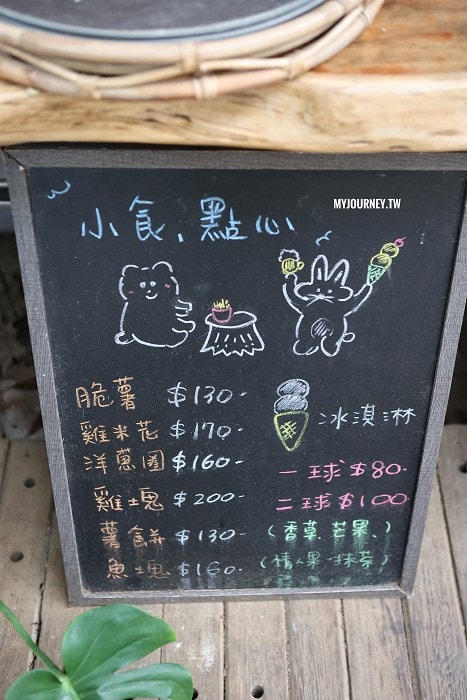 MYJOURNEY.TW
小食、點心
脆薯 $130-
雞米花 $170-
洋蔥圈 $160-
雞塊 $200-
薯餅 $130-
魚塊 $160-
冰淇淋
一球 $80-
二球 $100
(香草、芒果、)
(情人果、抹茶)